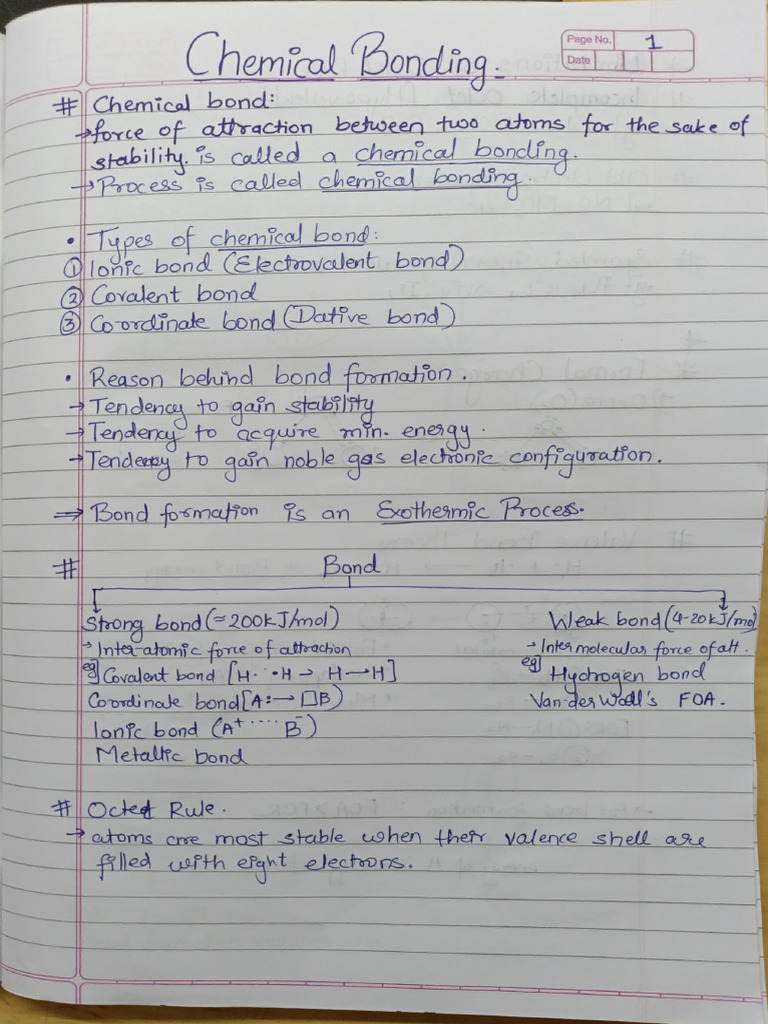 Page No. 1
Date
Chemical Bonding.
# Chemical bond:
→ force of attraction between two atoms for the sake of
stability. is called a chemical bonding.
→ Process is called chemical bonding.
• Types of chemical bond:
① Ionic bond (Electrovalent bond)
② Covalent bond
③ Co-ordinate bond (Dative bond)
• Reason behind bond formation.
→ Tendency to gain stability
→ Tendency to acquire min. energy.
→ Tendency to gain noble gas electronic configuration.
⇒ Bond formation is an Exothermic Process.
# Bond
Strong bond (≈200kJ/mol)
→ Inter-atomic force of attraction
eg] Covalent bond [H· ·H → H—H]
Coordinate bond [A: → □B)
Ionic bond (A⁺ ···· B⁻)
Metallic bond
Weak bond (4-20kJ/mol)
→ Intermolecular force of att.
eg] Hydrogen bond
Van-der Waal's FOA.
# Octet Rule.
→ atoms are most stable when their valence shell are
filled with eight electrons.